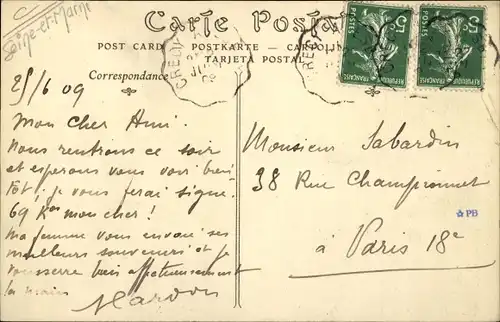 Seine-et-Marne
Carte Postale
POST CARD — POSTKARTE — CARTOLI
TARJETA POSTAL
Correspondance
CREDI
09
5c POSTES
REPUBLIQUE FRANÇAISE
5c POSTES
REPUBLIQUE FRANÇAISE
25/6 09
Mon cher Ami.
Nous rentrons ce soir
et esperons vous voir bien
tôt! je vous ferai signe.
69 Kos mon cher!
Ma femme vous envoi ses
meilleurs souvenirs et je
vous serre bien affectueusement
la main
Mardon
Monsieur Sabardin
38 Rue Championnet
à Paris 18e
PB